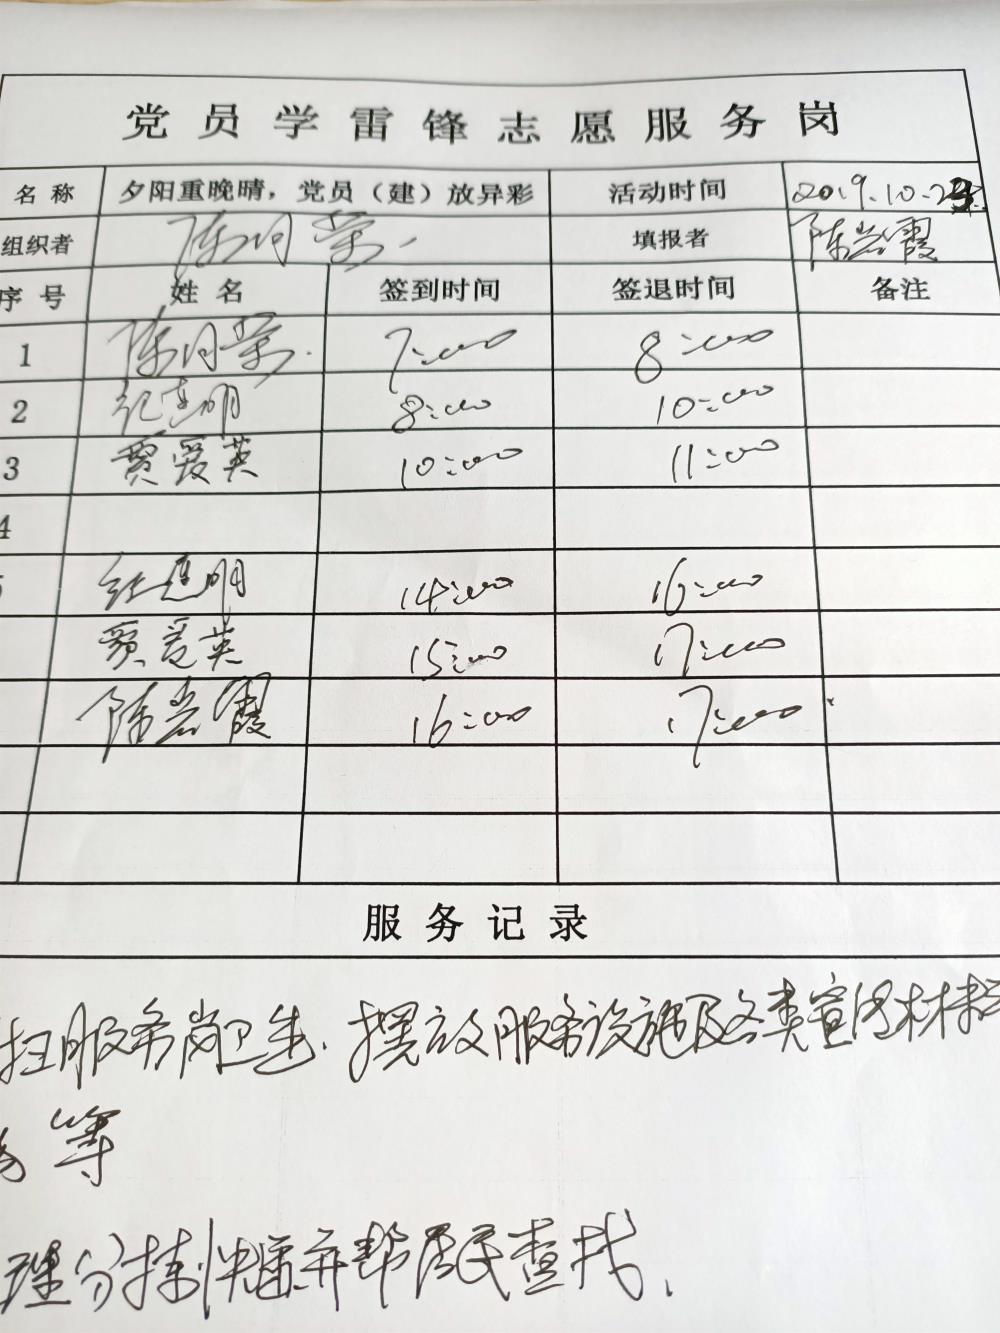 党员学雷锋志愿服务岗
名称 夕阳重晚晴，党员（建）放异彩 活动时间 2019.10.2
组织者 陈月荣 填报者 陈岩霞
序号 姓名 签到时间 签退时间 备注
1 陈月荣 7:00 8:00
2 纪连明 8:00 10:00
3 贾爱英 10:00 11:00
4
纪连明 14:00 16:00
贾爱英 15:00 17:00
陈岩霞 16:00 17:00
服务记录
扫服务岗卫生.摆放服务设施及各类宣传材料
等
理分拣 并帮居民查找.